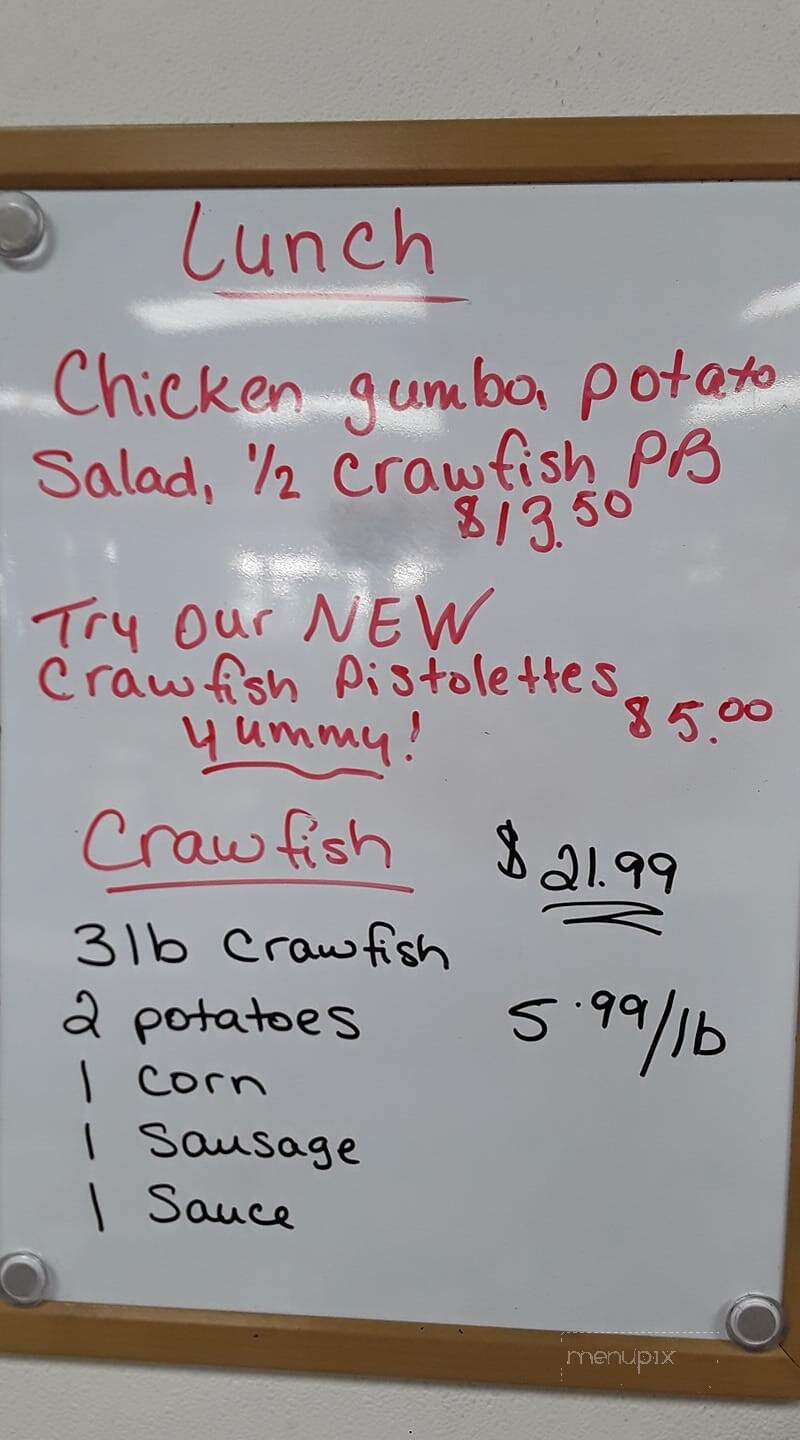 Lunch
Chicken gumbo, potato
Salad, 1/2 crawfish PB
$13.50
Try our NEW
Crawfish Pistolettes
$5.00
Yummy!
Crawfish $21.99
3lb Crawfish
2 potatoes 5.99/lb
1 Corn
1 Sausage
1 Sauce
menupix